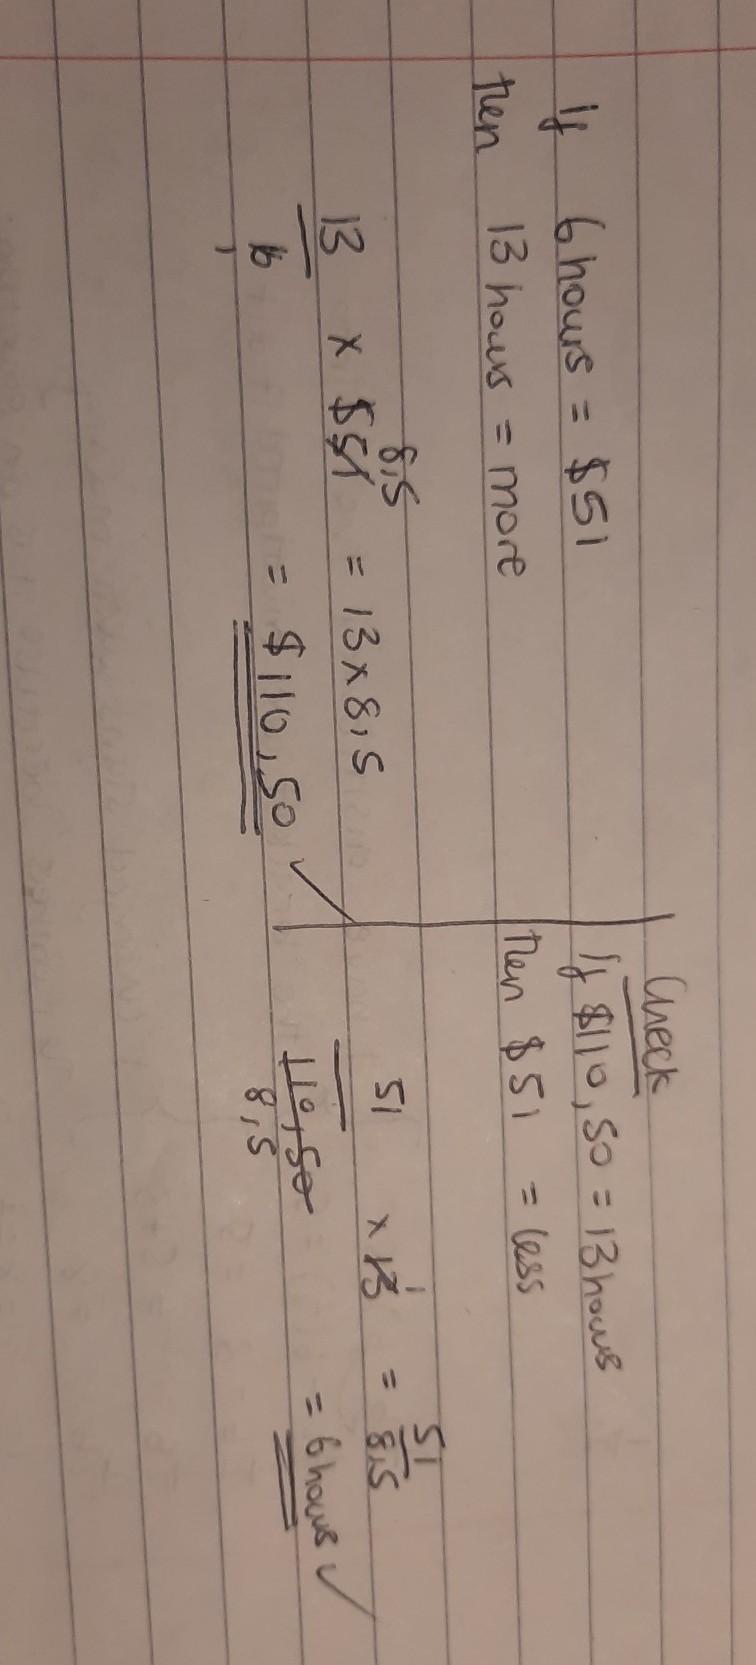 If 6 hours = $51
then 13 hours = more
8,5
13 x $51 = 13 x 8,5
6
1
= $110,50 ✓
Check
If $110,50 = 13 hours
then $51 = less
51 x 13 = 51
1
110,50
8,5
8,5
= 6 hours ✓